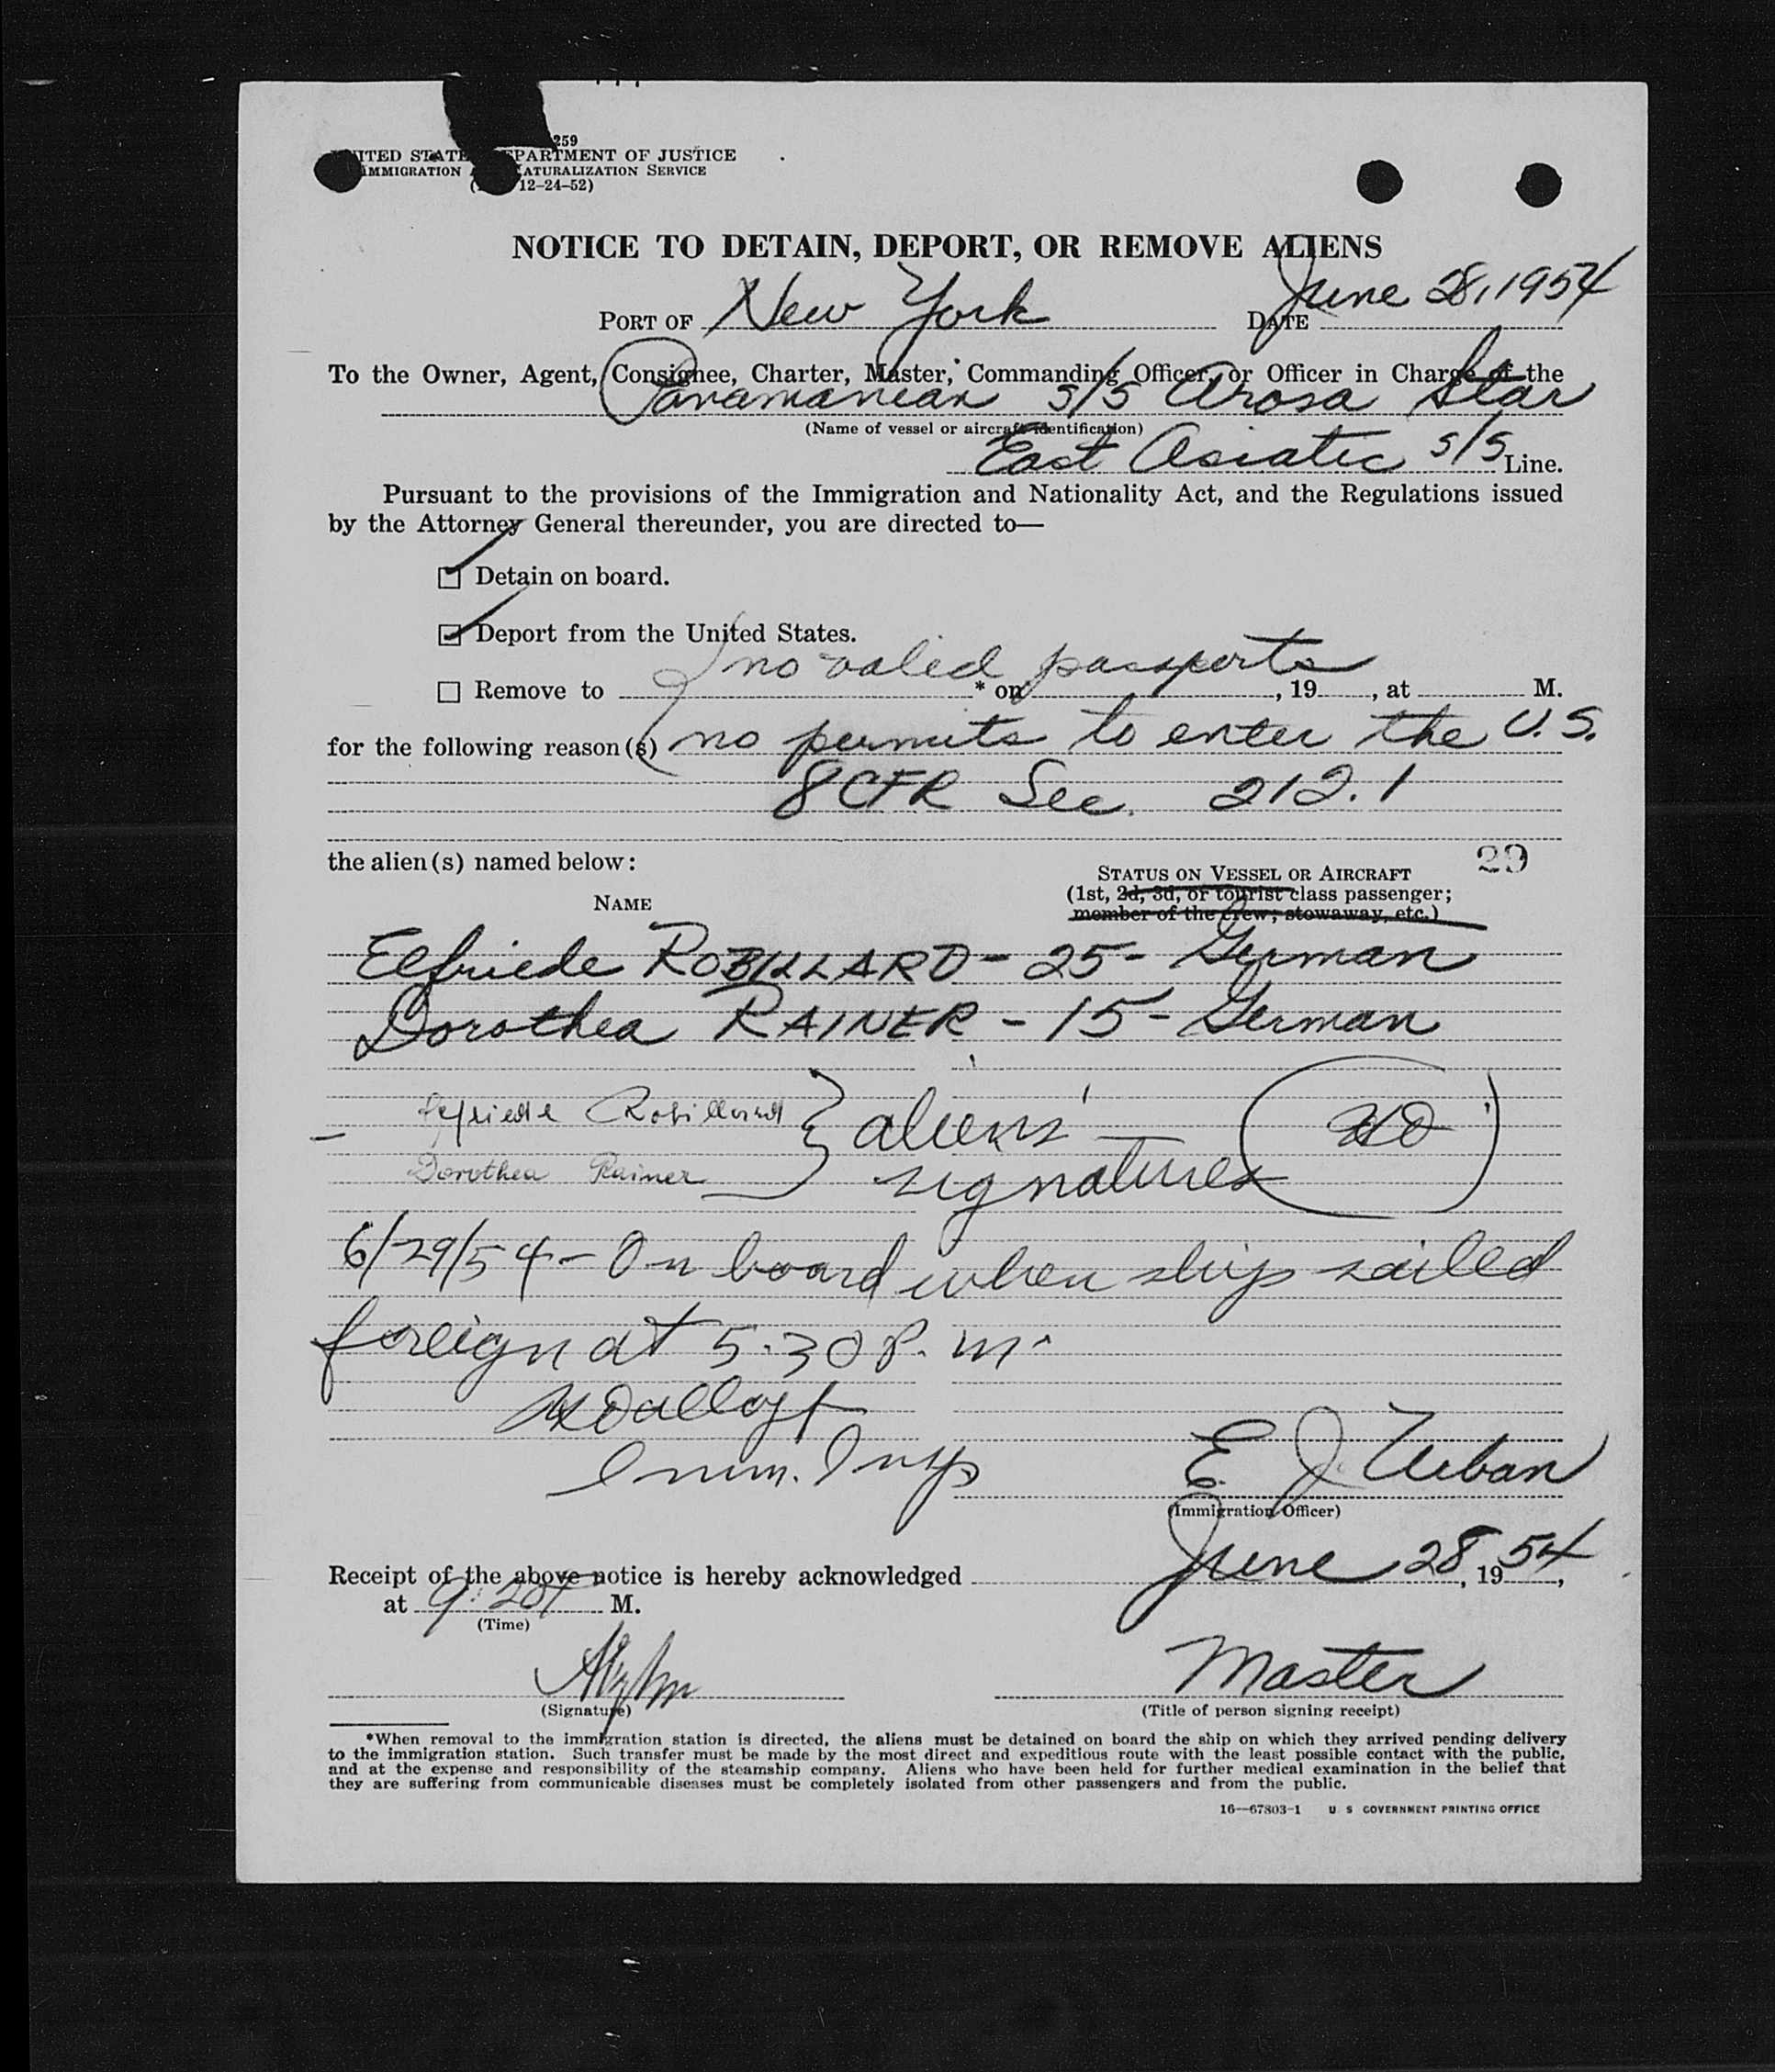 259
UNITED STATES DEPARTMENT OF JUSTICE
IMMIGRATION AND NATURALIZATION SERVICE
12-24-52)
NOTICE TO DETAIN, DEPORT, OR REMOVE ALIENS
PORT OF New York DATE June 28, 1954
To the Owner, Agent, Consignee, Charter, Master, Commanding Officer, or Officer in Charge of the
Panamanian S/S Arosa Star
(Name of vessel or aircraft identification)
East Asiatic S/S Line.
Pursuant to the provisions of the Immigration and Nationality Act, and the Regulations issued
by the Attorney General thereunder, you are directed to—
Detain on board.
Deport from the United States.
no valid passports
Remove to * on , 19 , at M.
for the following reason(s) no permits to enter the U.S.
8 CFR Sec. 212.1
the alien(s) named below:
29
STATUS ON VESSEL OR AIRCRAFT
(1st, 2d, 3d, or tourist class passenger;
member of the crew; stowaway, etc.)
NAME
Elfriede ROBILLARD - 25 - German
Dorothea RAINER - 15 - German
Elfriede Robillard
Dorothea Rainer
aliens'
signatures
6/29/54 - On board when ship sailed
foreign at 5.30 P.m.
Imm. Insp
E. J. Urban
(Immigration Officer)
Receipt of the above notice is hereby acknowledged June 28, 1954,
at 9:20 P M.
(Time)
Master
(Signature) (Title of person signing receipt)
*When removal to the immigration station is directed, the aliens must be detained on board the ship on which they arrived pending delivery
to the immigration station. Such transfer must be made by the most direct and expeditious route with the least possible contact with the public,
and at the expense and responsibility of the steamship company. Aliens who have been held for further medical examination in the belief that
they are suffering from communicable diseases must be completely isolated from other passengers and from the public.
16—67803-1 U S GOVERNMENT PRINTING OFFICE